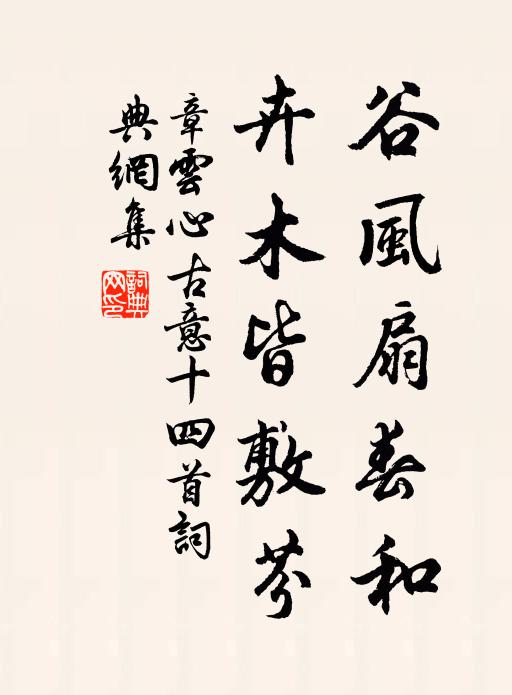 谷風扇春和
卉木皆敷芬
章雲心古意十四首詞
典網集
詞典網印